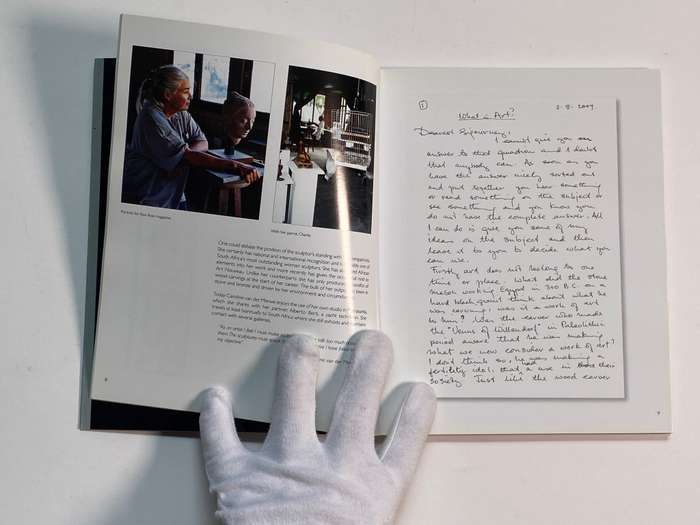 Portrait for Fair Lady magazine.
With her parrot, Charlie.
One could debate the position of the sculptor's standing with
She certainly has national and international recognition and is
South Africa's most outstanding women sculptors. She has
elements into her work and more recently has given the
Art Nouveau. Unlike her counterparts she has only produced
wood carvings at the start of her career. The bulk of her output
stone and bronze and driven by her environment and circumstances.
Today Caroline van der Merwe enjoys the use of her own studio in
which she shares with her partner, Alberto Berti, a yacht
travels at least biannually to South Africa where she still exhibits and
contact with several galleries.
"As an artist I feel I must make
my objective"
8
1
2-8-2009
What is Art?
Dearest Sojourney,
I cannot give you an
answer to that question and I doubt
that anybody can. As soon as you
have the answer nicely sorted out
and put together you hear something
or read something on the subject or
see something and you know you
do not have the complete answer. All
I can do is give you some of my
ideas on the subject and then
leave it to you to decide what you
can use.
Firstly art does not belong to one
time or place. What did the stone
mason working Egypt in 300 B.C. on a
hard block of granite think about what he
was carving: was it a work of art
to him? Was the carver who made
the "Venus of Willendorf" in Paleolithic
period aware that he was making
what we now consider a work of art?
I don't think so, he was making a
fertility idol, that had a use in their
society. Just like the wood carver
9